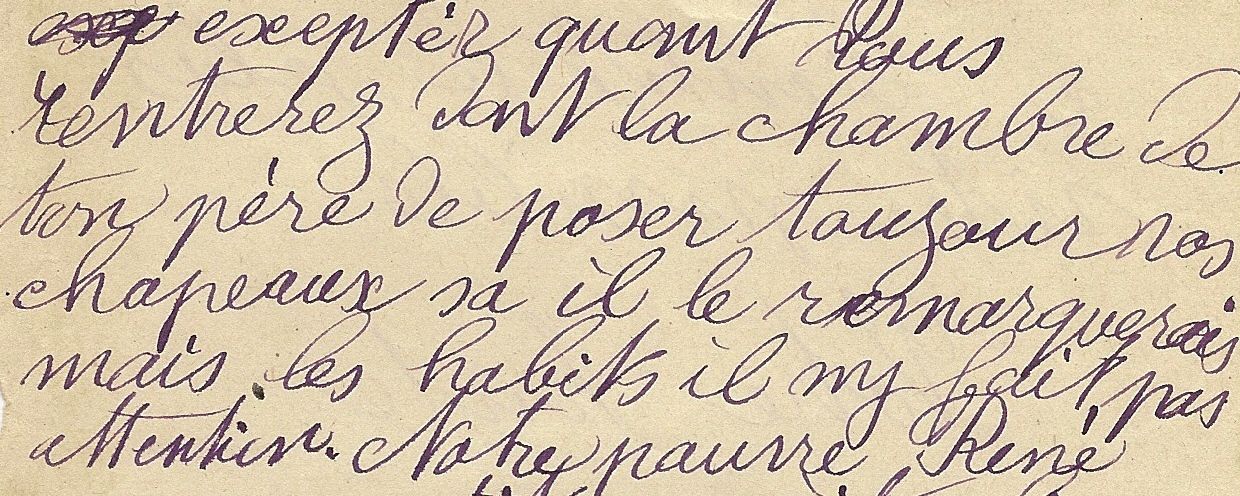 exseptér quant Vous
rentrerez dant la chambre de
ton père de poser toujour nos
chapeaux sa il le remarquerais
mais les habits il ny fait pas
attention. Notre pauvre René